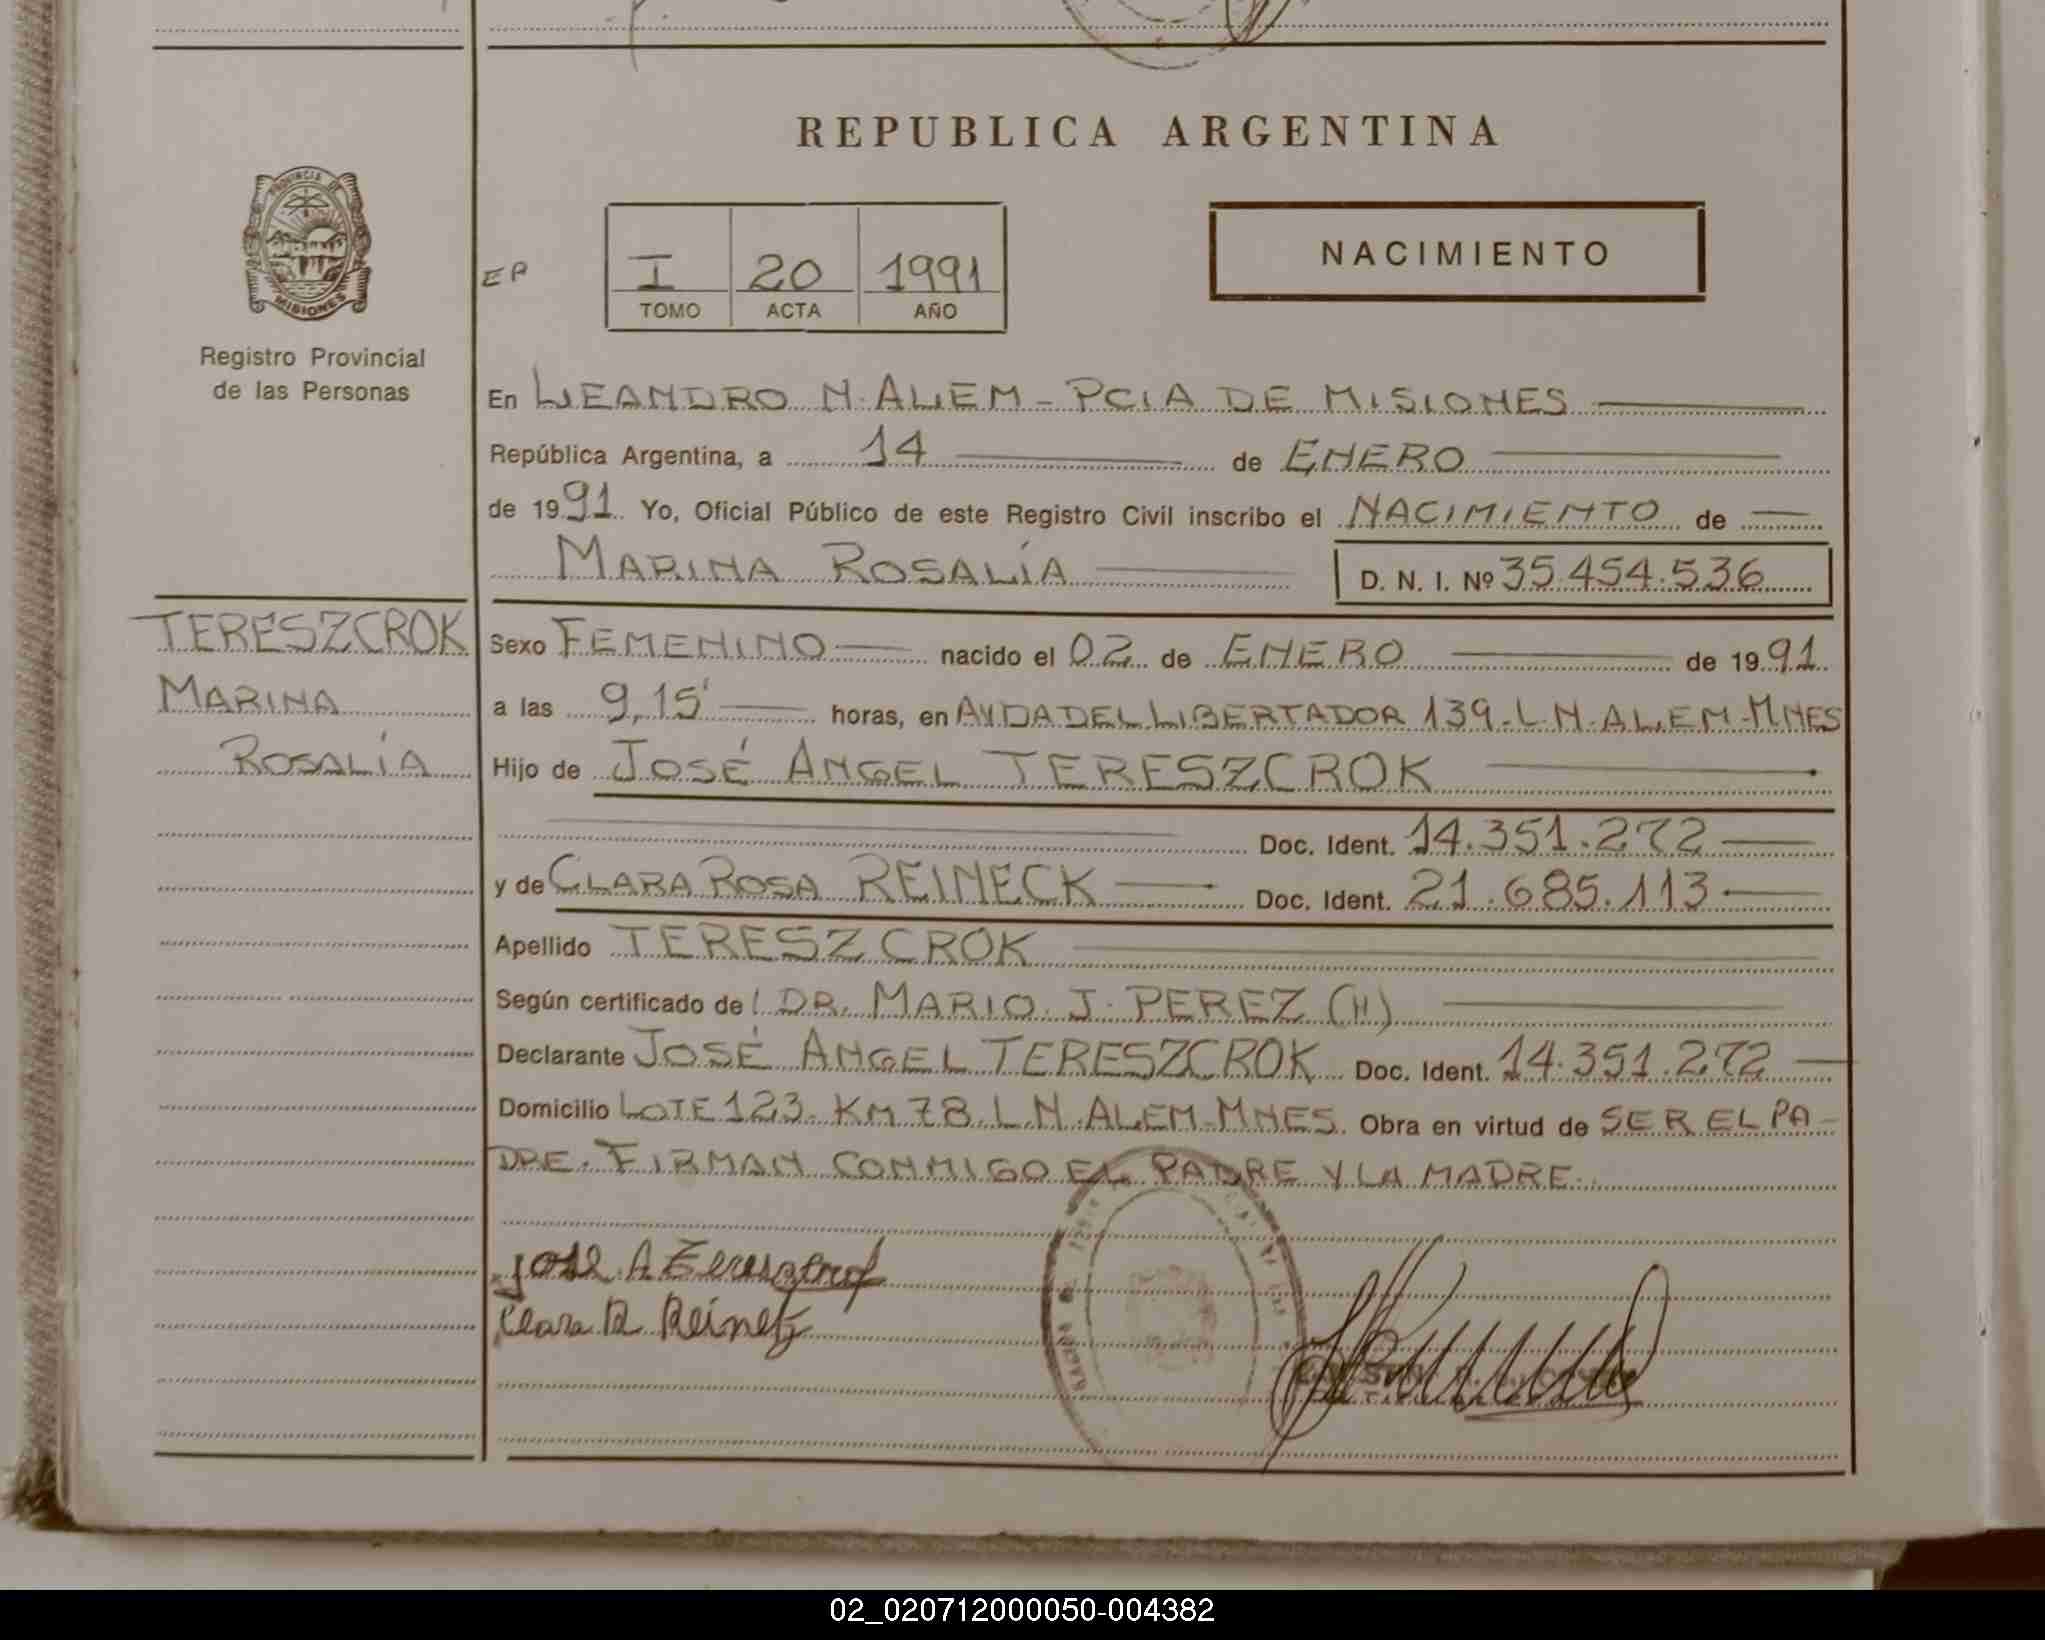 REPUBLICA ARGENTINA
PROVINCIA DE
MISIONES
Registro Provincial
de las Personas
EP
I 20 1991
TOMO ACTA AÑO
NACIMIENTO
En LEANDRO N. ALEM - PCIA DE MISIONES
República Argentina, a 14 de ENERO
de 1991. Yo, Oficial Público de este Registro Civil inscribo el NACIMIENTO de
MARINA ROSALÍA
D. N. I. Nº 35.454.536
TERESZCROK
MARINA
ROSALÍA
Sexo FEMENINO nacido el 02 de ENERO de 1991
a las 9,15' horas, en AVDA DEL LIBERTADOR 139. L.N. ALEM-MNES
Hijo de JOSÉ ANGEL TERESZCROK
Doc. Ident. 14.351.272
y de CLARA ROSA REINECK Doc. Ident. 21.685.113
Apellido TERESZCROK
Según certificado de l DR. MARIO J. PEREZ (H)
Declarante JOSÉ ANGEL TERESZCROK Doc. Ident. 14.351.272
Domicilio LOTE 123. KM 78. L.N. ALEM-MNES. Obra en virtud de SER EL PA-
DRE. FIRMAN CONMIGO EL PADRE Y LA MADRE.
José A Tereszcrok
Clara R Reineck
02_020712000050-004382